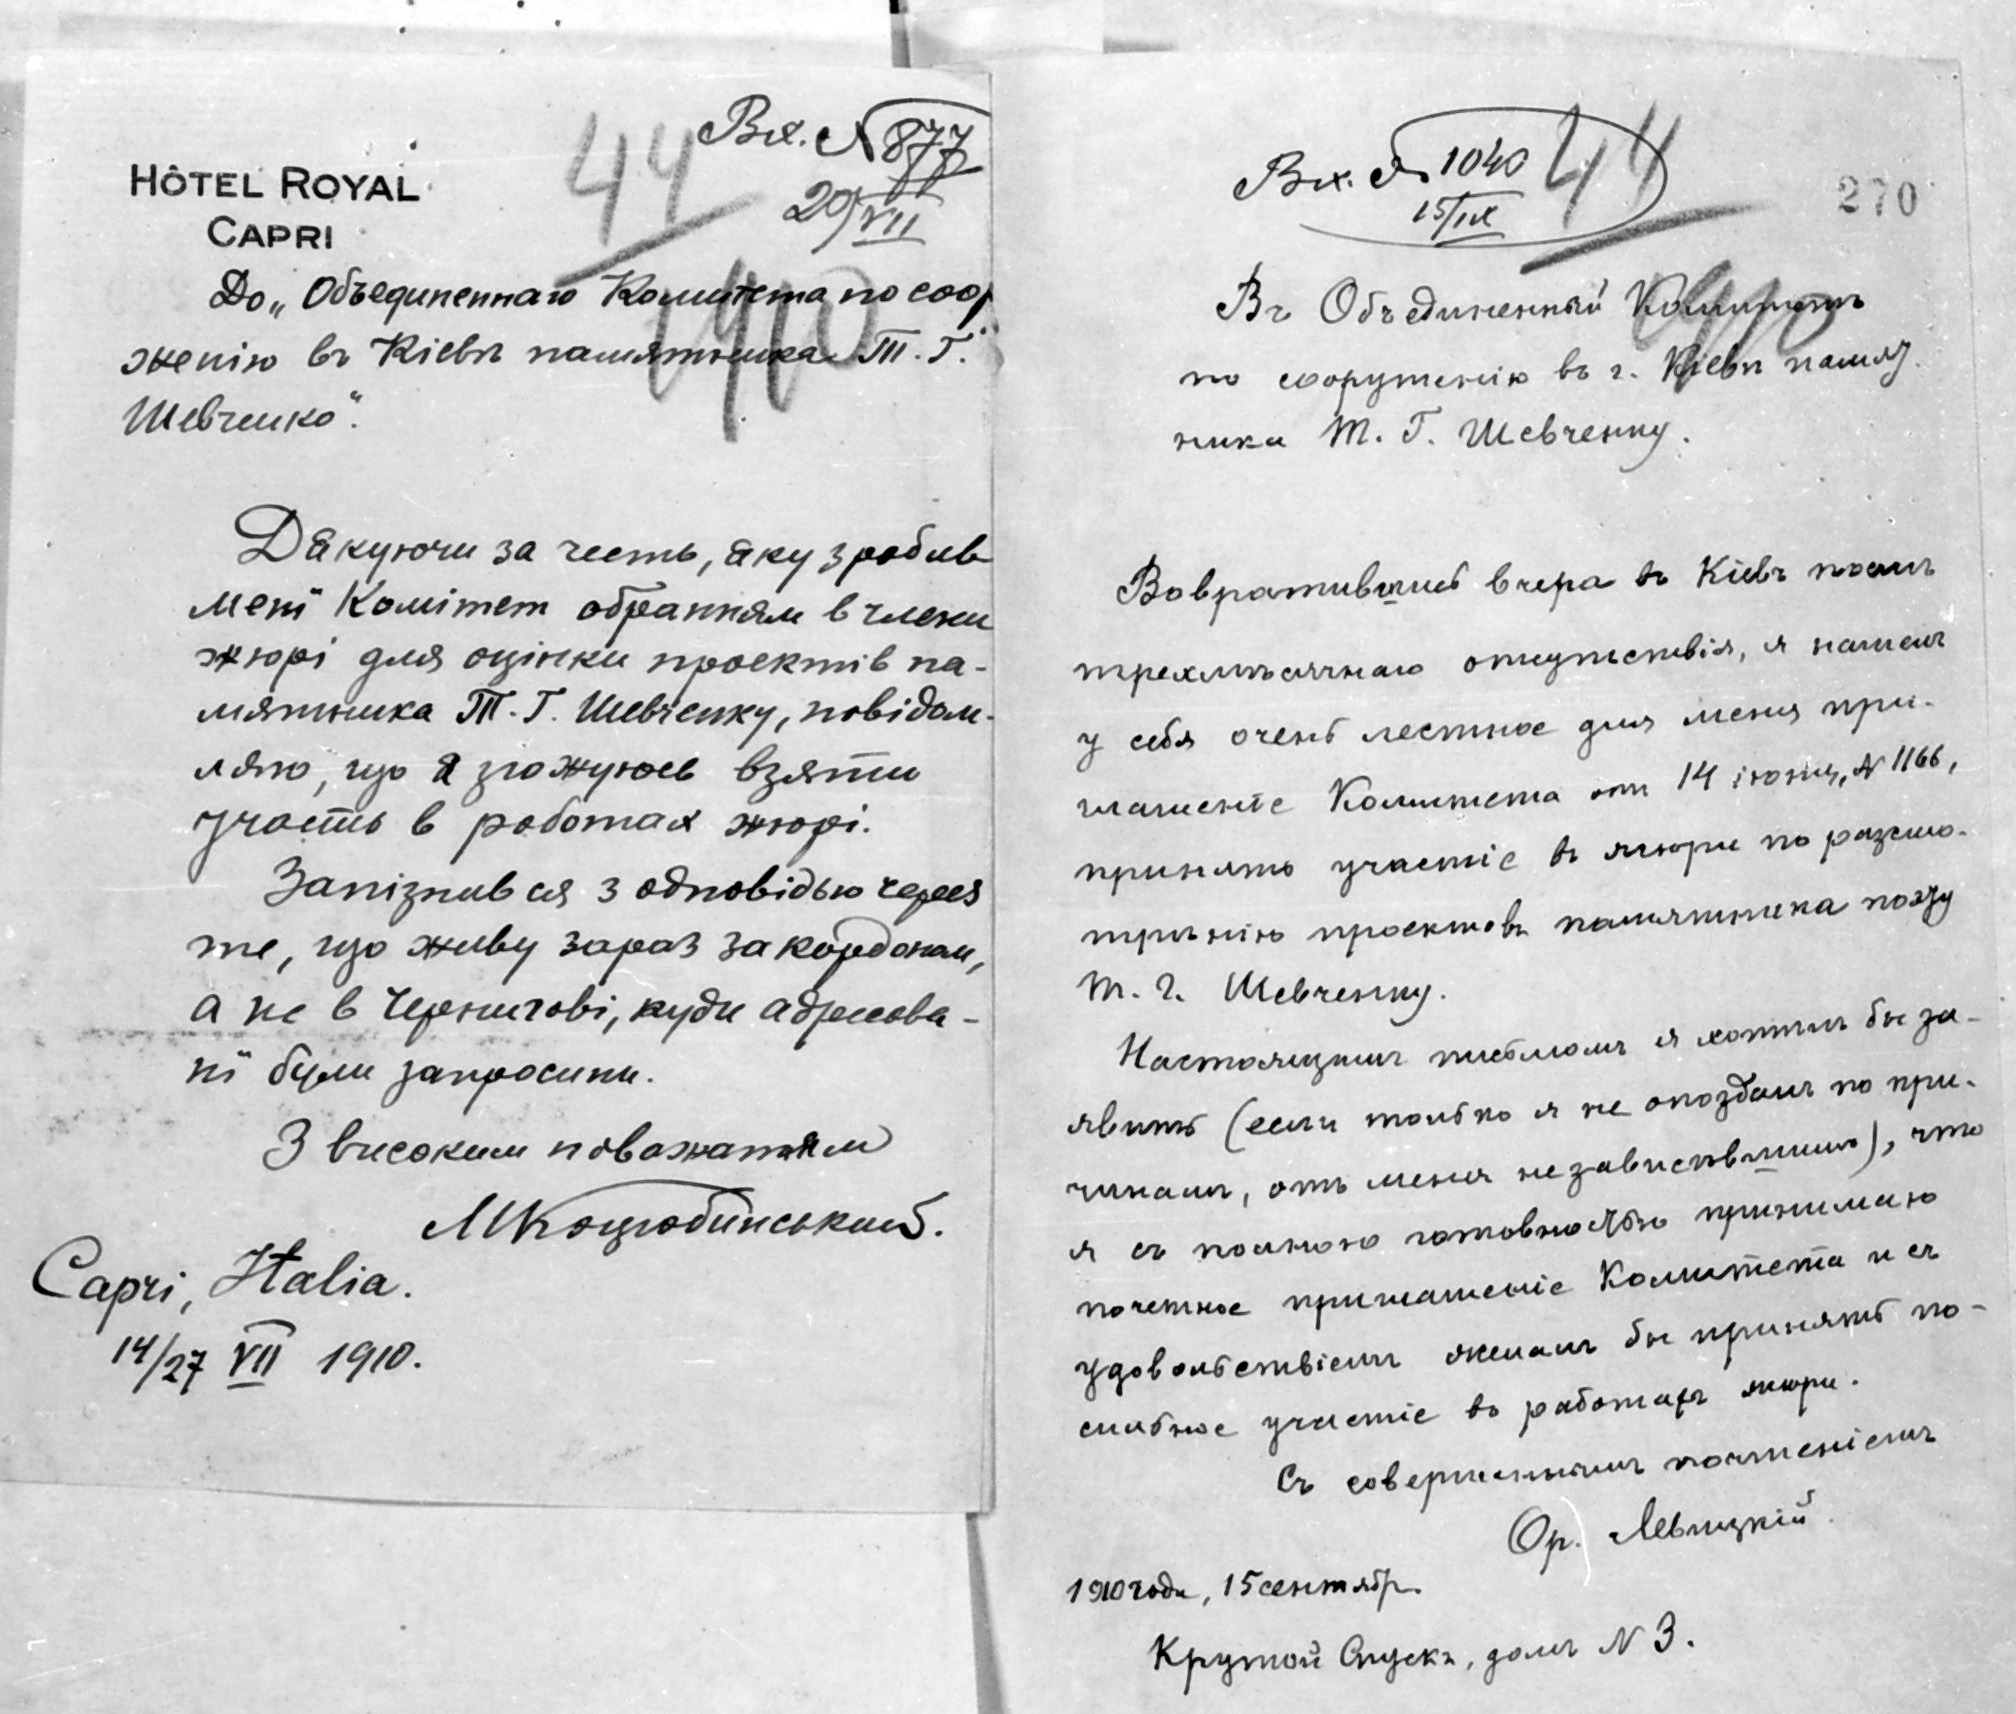 Вх. № 877
44
20/VII
HÔTEL ROYAL
CAPRI
До „Объединеннаго Комитета по соор
1910
женію въ Кіевѣ памятника Т. Г.
Шевченко".
Дякуючи за честь, яку зробив
мені Комітет обранням в члени
жюрі для оцінки проектів па-
мятника Т. Г. Шевченку, повідом-
ляю, що я згожуюсь взяти
участь в роботах жюрі.
Запізнився з одповідью через
те, що живу зараз за кордоном,
а не в Чернигові, куди адресова-
ні були запросини.
З високим поважанням
МКоцюбинський.
Capri, Italia.
14/27 VII 1910.
Вх. № 1040
44
15/IX
270
Въ Объединенный Комитетъ
1910
по сооруженію въ г. Кіевѣ памят
ника Т. Г. Шевченку.
Вовратившись вчера въ Кіевъ послѣ
трехмѣсячнаго отсутствія, я нашелъ
у себя очень лестное для меня при-
глашеніе Комитета от 14 іюня, № 1166,
принять участіе въ жюри по разсмо-
трѣнію проектовъ памятника поэту
Т. Г. Шевченку.
Настоящимъ письмомъ я хотѣлъ бы за-
явить (если только я не опоздалъ по при-
чинамъ, отъ меня независѣвшимъ), что
я съ полною готовностью принимаю
почетное приглашеніе Комитета и съ
удовольствіемъ желалъ бы принять по-
сильное участіе въ работахъ жюри.
Съ совершеннымъ почтеніемъ
Ор. Левицкій.
1910 года, 15 сентябр.
Крутой Спускъ, домъ № 3.